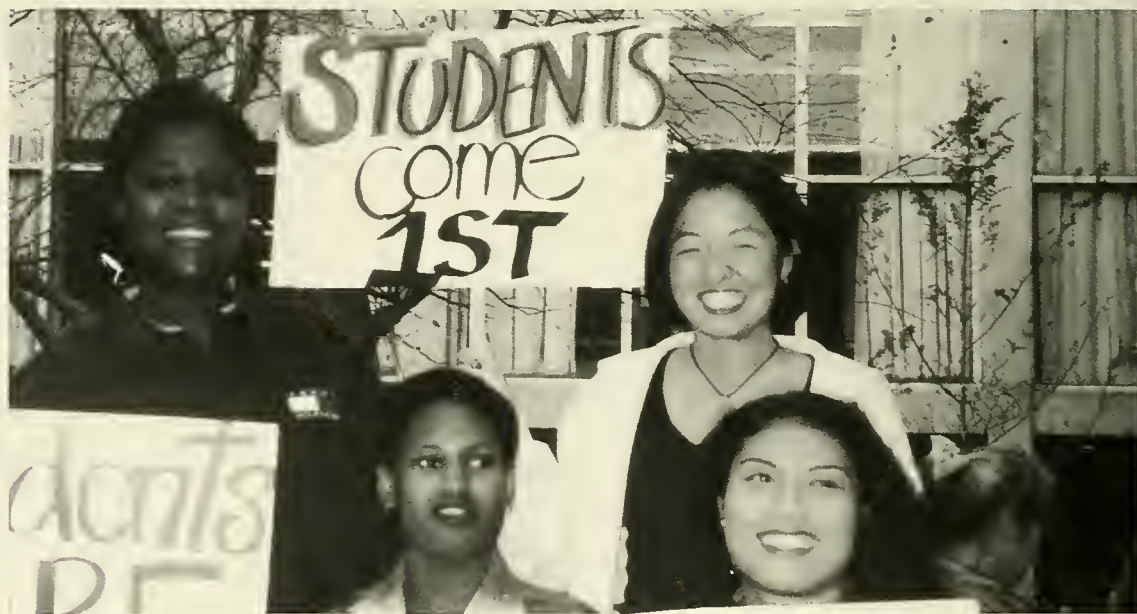 STUDENTS
come
1ST
dents